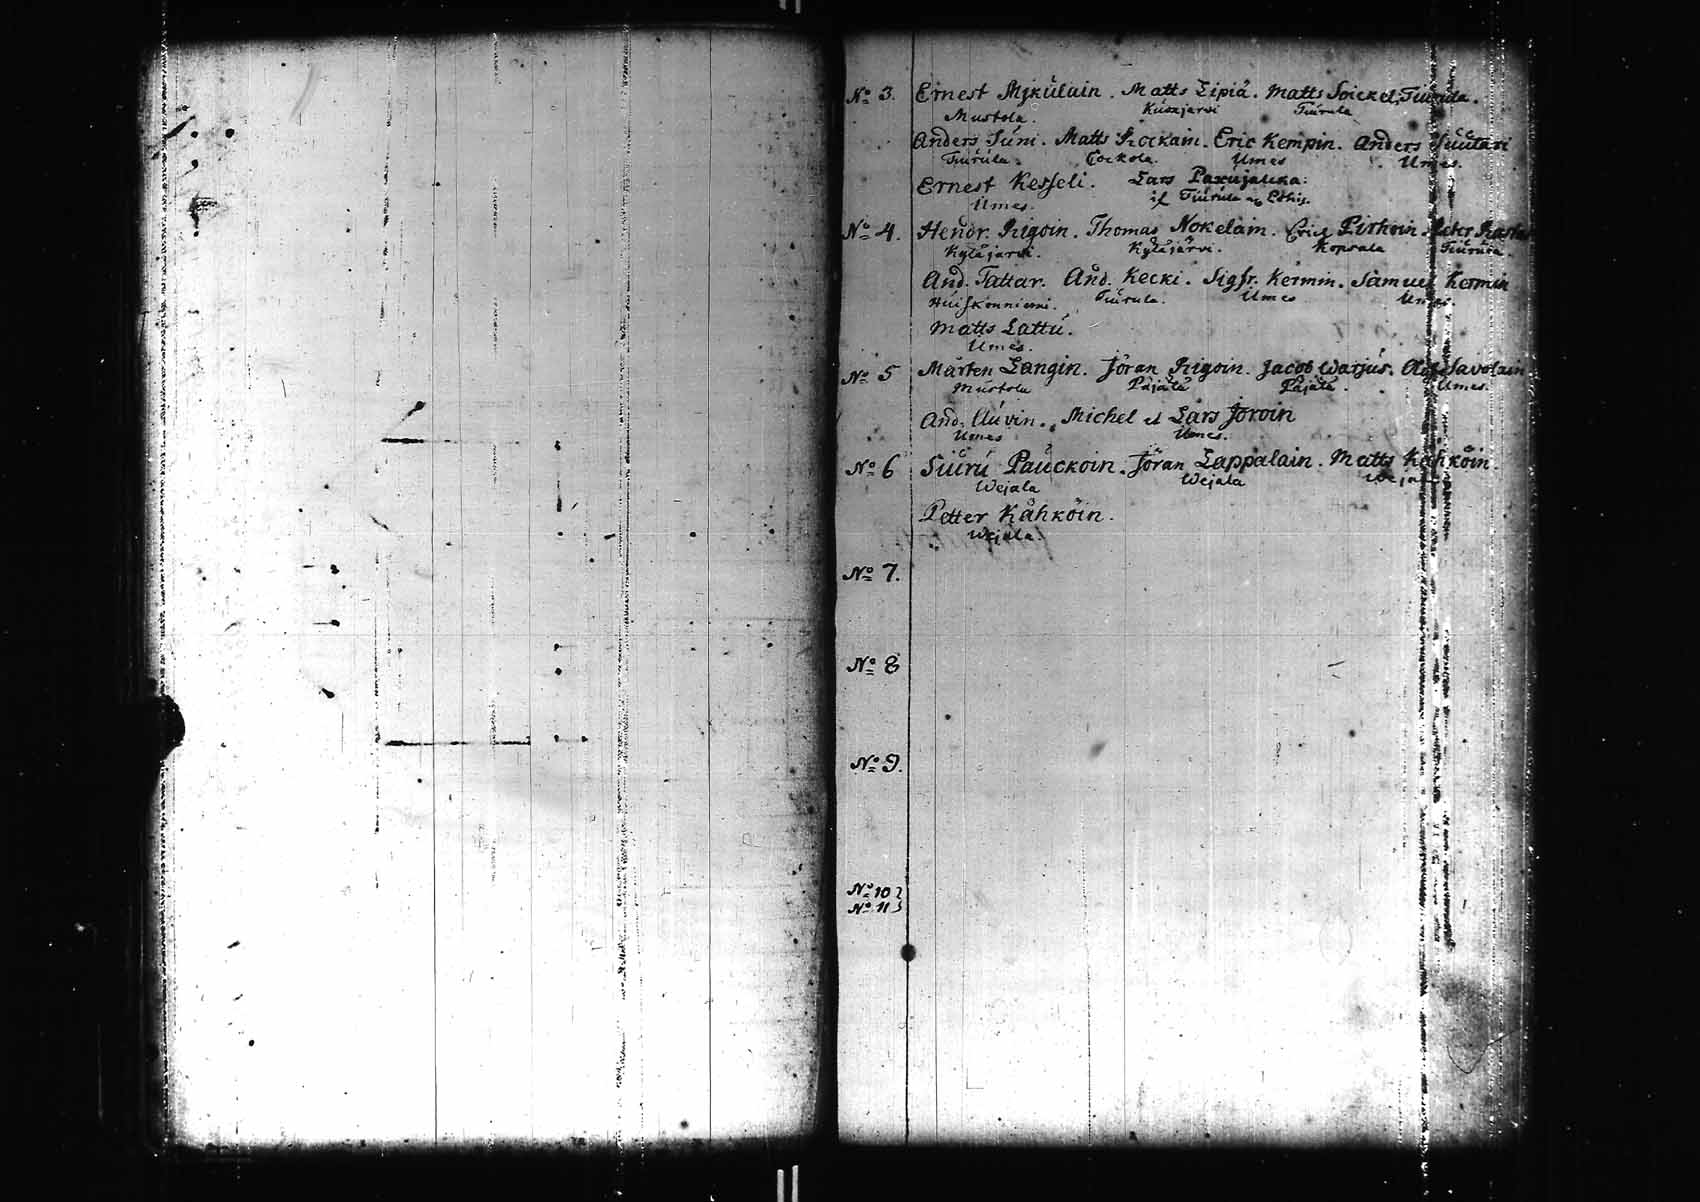 No 3. Ernest Mjkuläin. Matts Lipiä. Matts Soickel, Tiúrula.
Mustola. Kúsajärvi Tiúrula
Anders Súni. Matts Rockain. Eric Kempin. Anders Súútari
Tiúrúla. Cockola. Úmes Úmes.
Ernest Kesseli. Lars
Úmes. Tiúrúla
No 4. Hendr. Rigoin. Thomas Nokelain. Eric Pirhoin
Kyläjärvi. Kyläjärvi. Koprala Tiúrúla.
And. Tattar. And. Kecki. Sigfr. Kermin. Samuel Kermin
Húiskonniemi. Tiúrula. Úmes Úmes.
Matts Lattú.
Úmes.
No 5 Mårten Langin. Jöran Rigoin. Jacob Warjús. Savolain
Mústola Pajala Pajala. Úmes.
And. Aúvin. Michel et Lars Joroin
Úmes Úmes.
No 6 Siúrú Paúckoin. Jöran Lappalain. Matts Kähköin.
Wejala Wejala
Petter Kähköin.
Wejala.
No 7.
No 8
No 9.
No 10
No 11